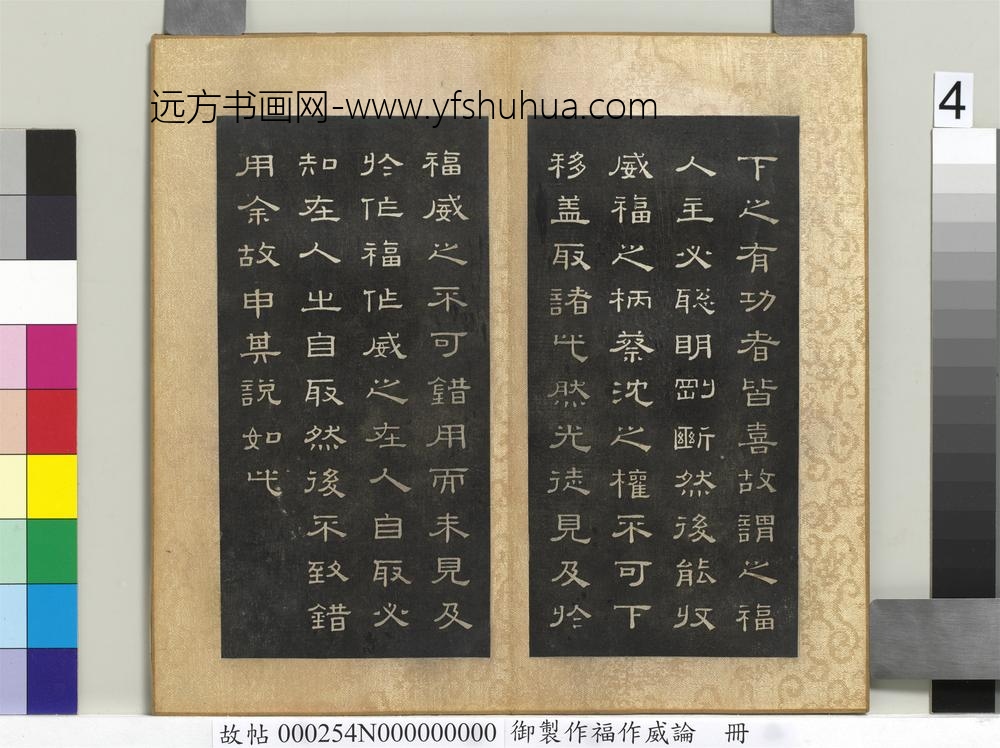 远方书画网-www.yfshuhua.com
4
下之有功者皆喜故謂之福
人主必聡明剛斷然後能收
威福之柄蔡沈之權不可下
移盖取諸此然光徒見及於
福威之不可錯用而未見及
於作福作威之在人自取必
知在人之自取然後不致錯
用余故申其說如此
故帖 000254N000000000 御製作福作威論 冊